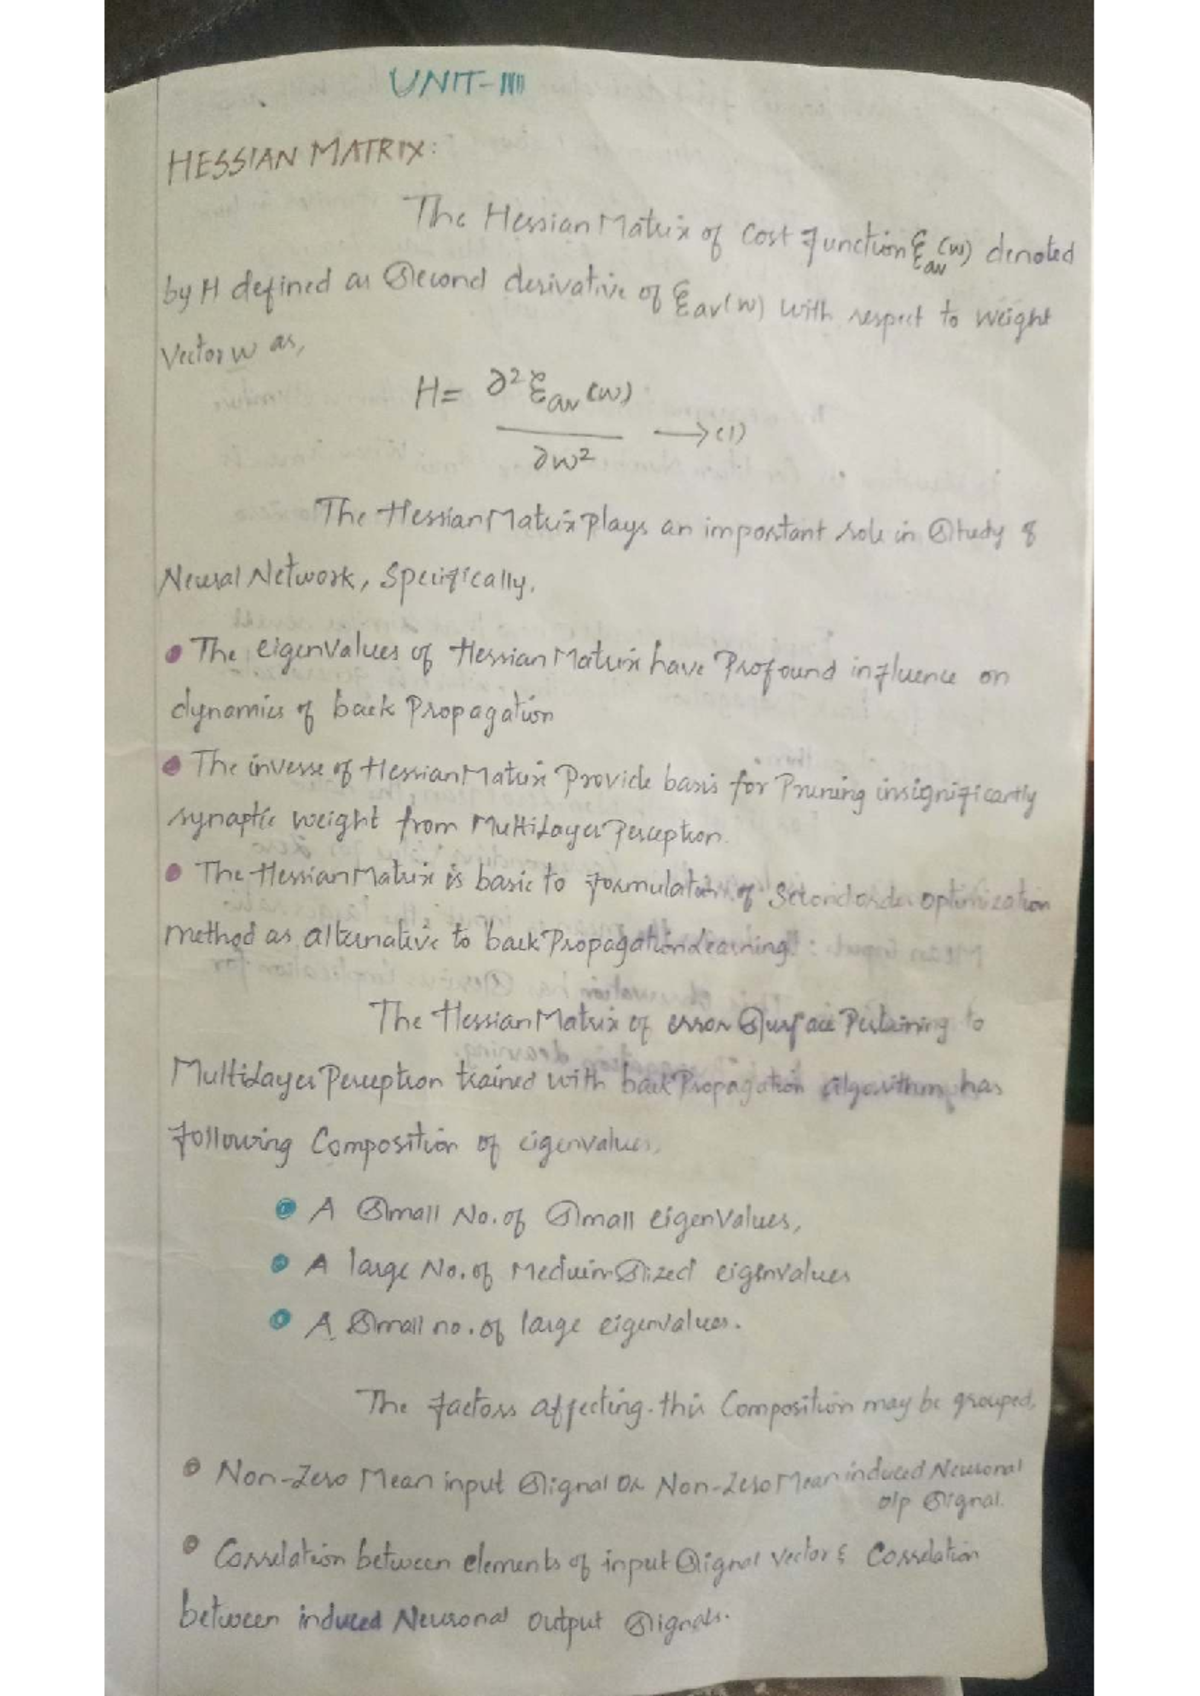 UNIT-III
HESSIAN MATRIX:
The Hessian Matrix of Cost Function ξav(w) denoted
by H defined as Second derivative of ξav(w) with respect to weight
Vector w as,
H = ∂²ξav(w)
→(1)
∂w²
The Hessian Matrix Plays an important role in Study of
Neural Network, Specifically,
• The eigenvalues of Hessian Matrix have Profound influence on
dynamics of back Propagation
• The inverse of Hessian Matrix Provide basis for Pruning insignificantly
synaptic weight from MultiLayer Perception.
• The Hessian Matrix is basic to formulation of Second order optimization
method as alternative to back Propagation Learning.
The Hessian Matrix of error Surface Pertaining to
MultiLayer Perception trained with back Propagation algorithm has
following Composition of eigenvalues.
• A Small No. of Small eigenvalues,
• A large No. of Medium Sized eigenvalues
• A Small no. of large eigenvalues.
The factors affecting this Composition may be grouped,
• Non-Zero Mean input Signal or Non-Zero Mean induced Neuronal
o/p Signal.
• Correlation between elements of input Signal vector & Correlation
between induced Neuronal output Signals.